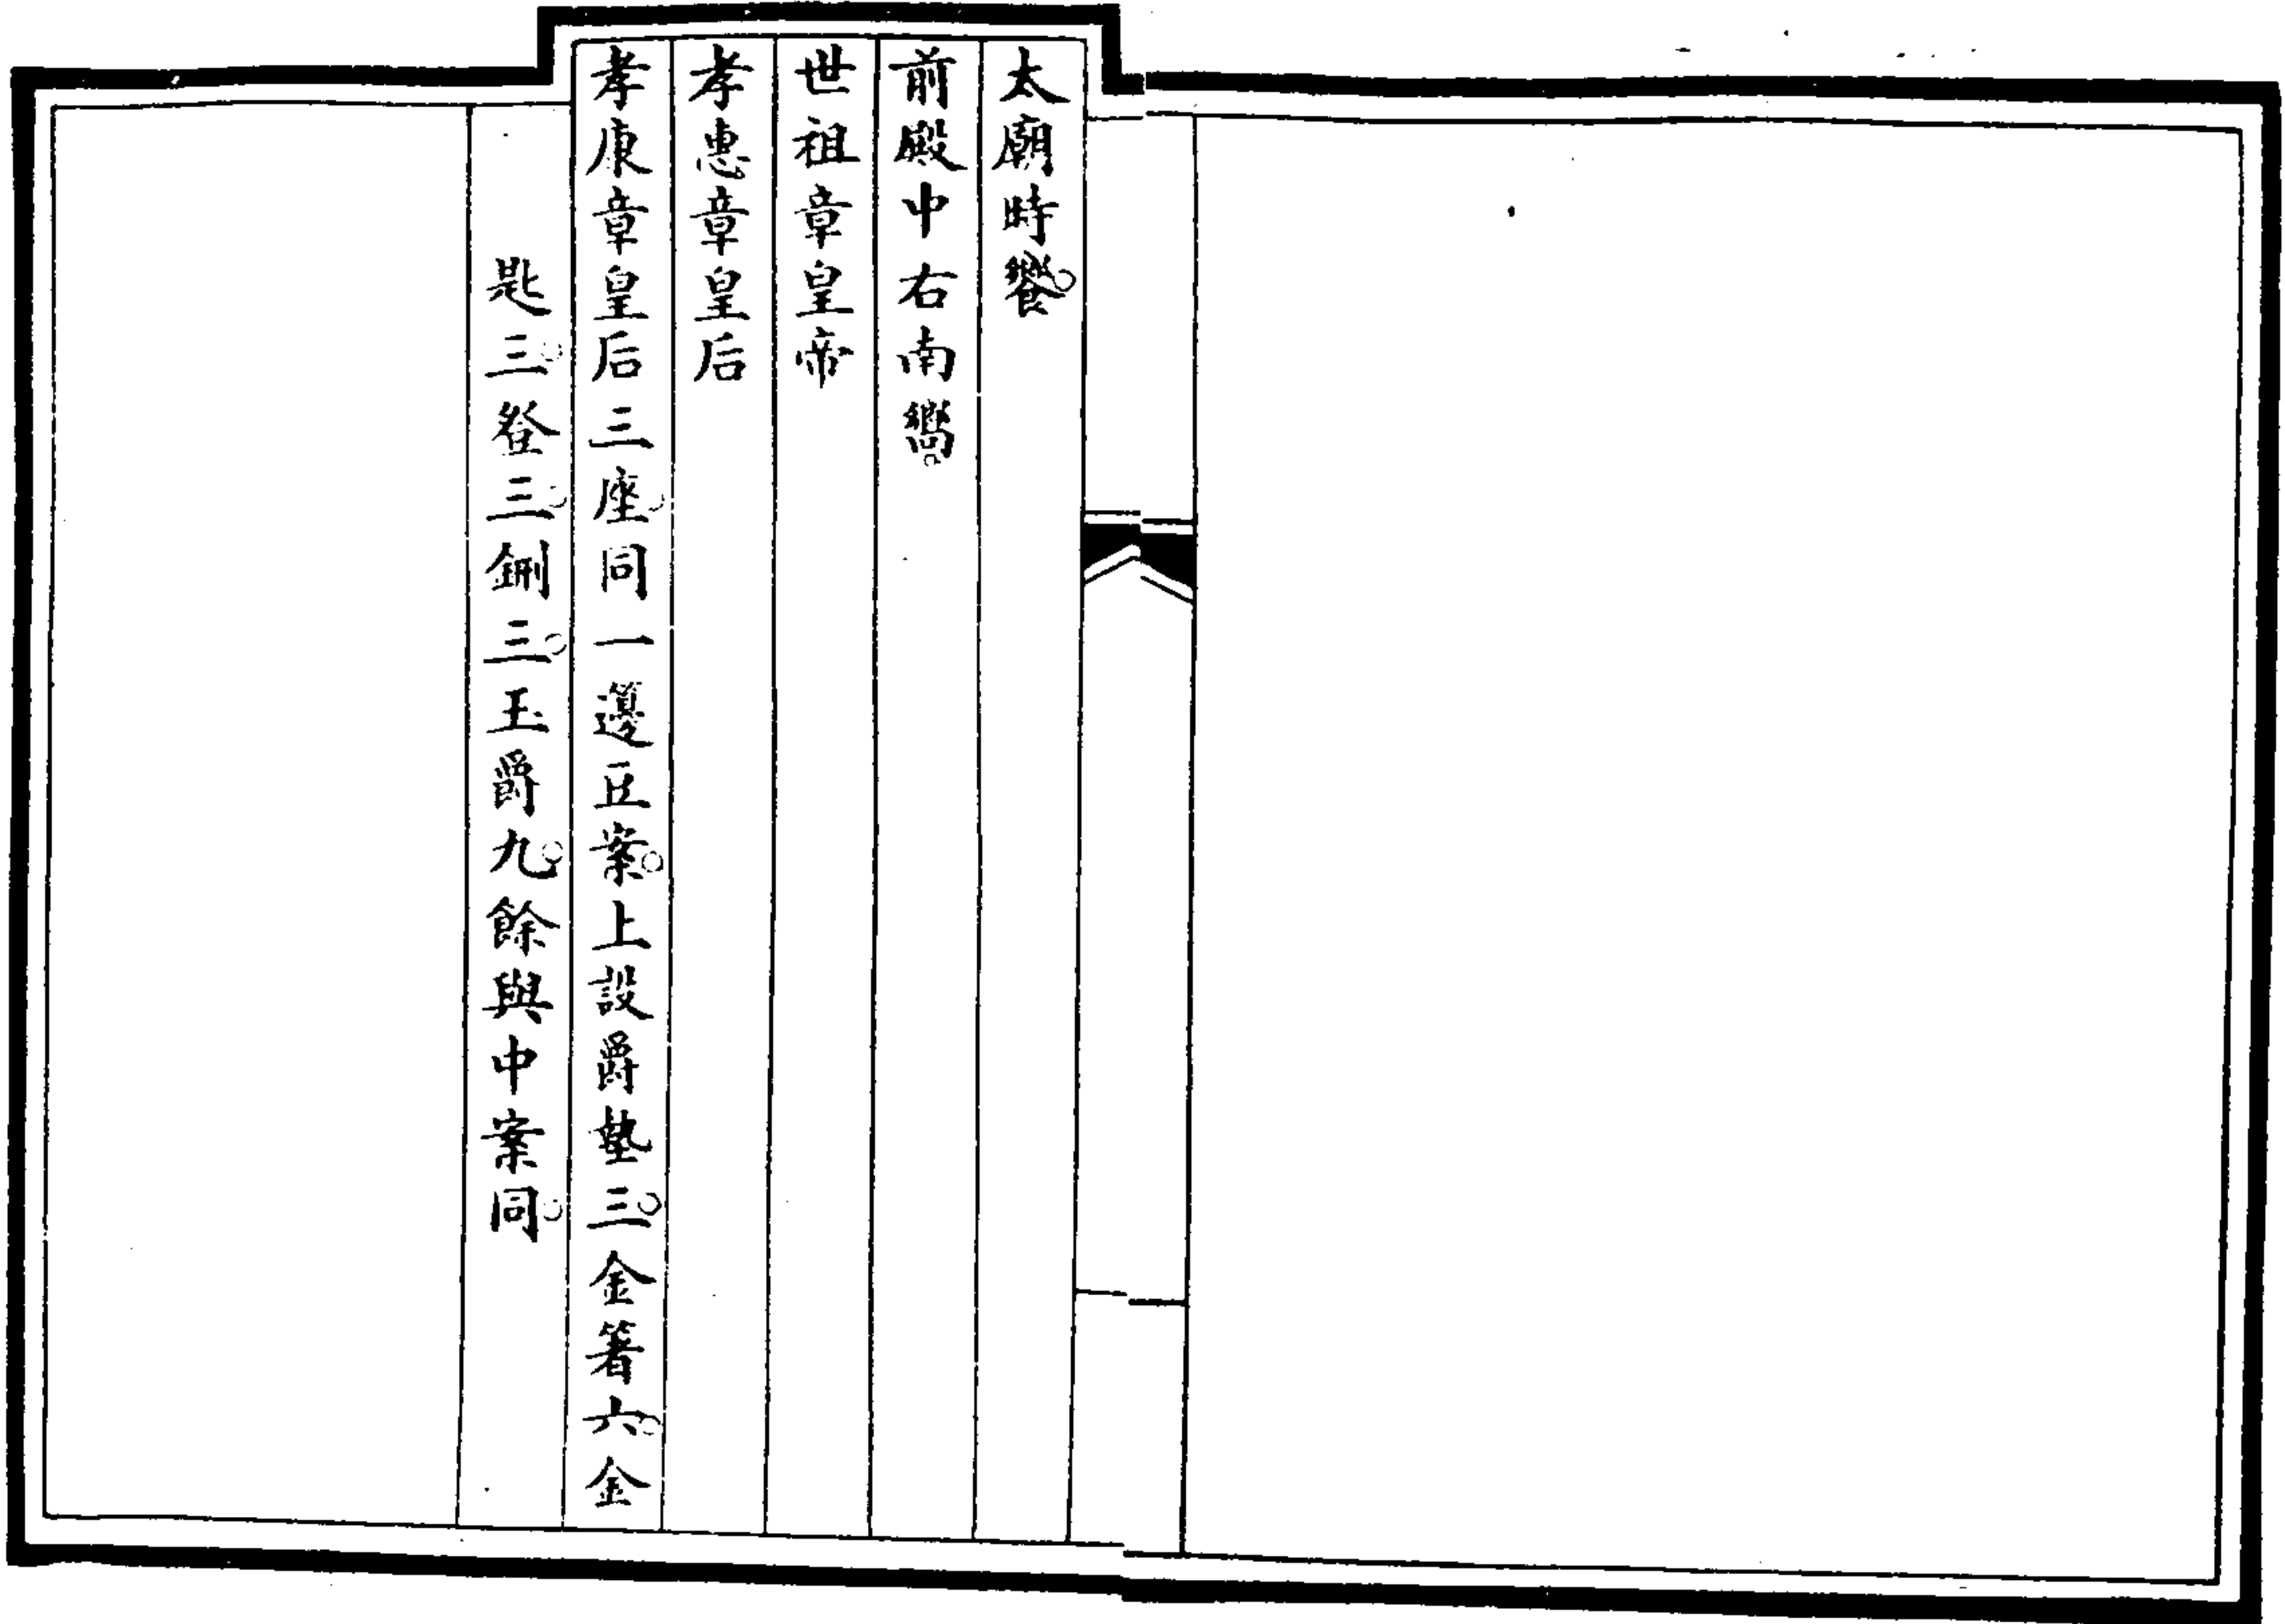 太廟時饗
前殿中右南嚮
世祖章皇帝
孝惠章皇后
孝康章皇后三座同一籩豆案上設爵墊三金箸六金
匙三登三鉶三玉爵九餘與中案同